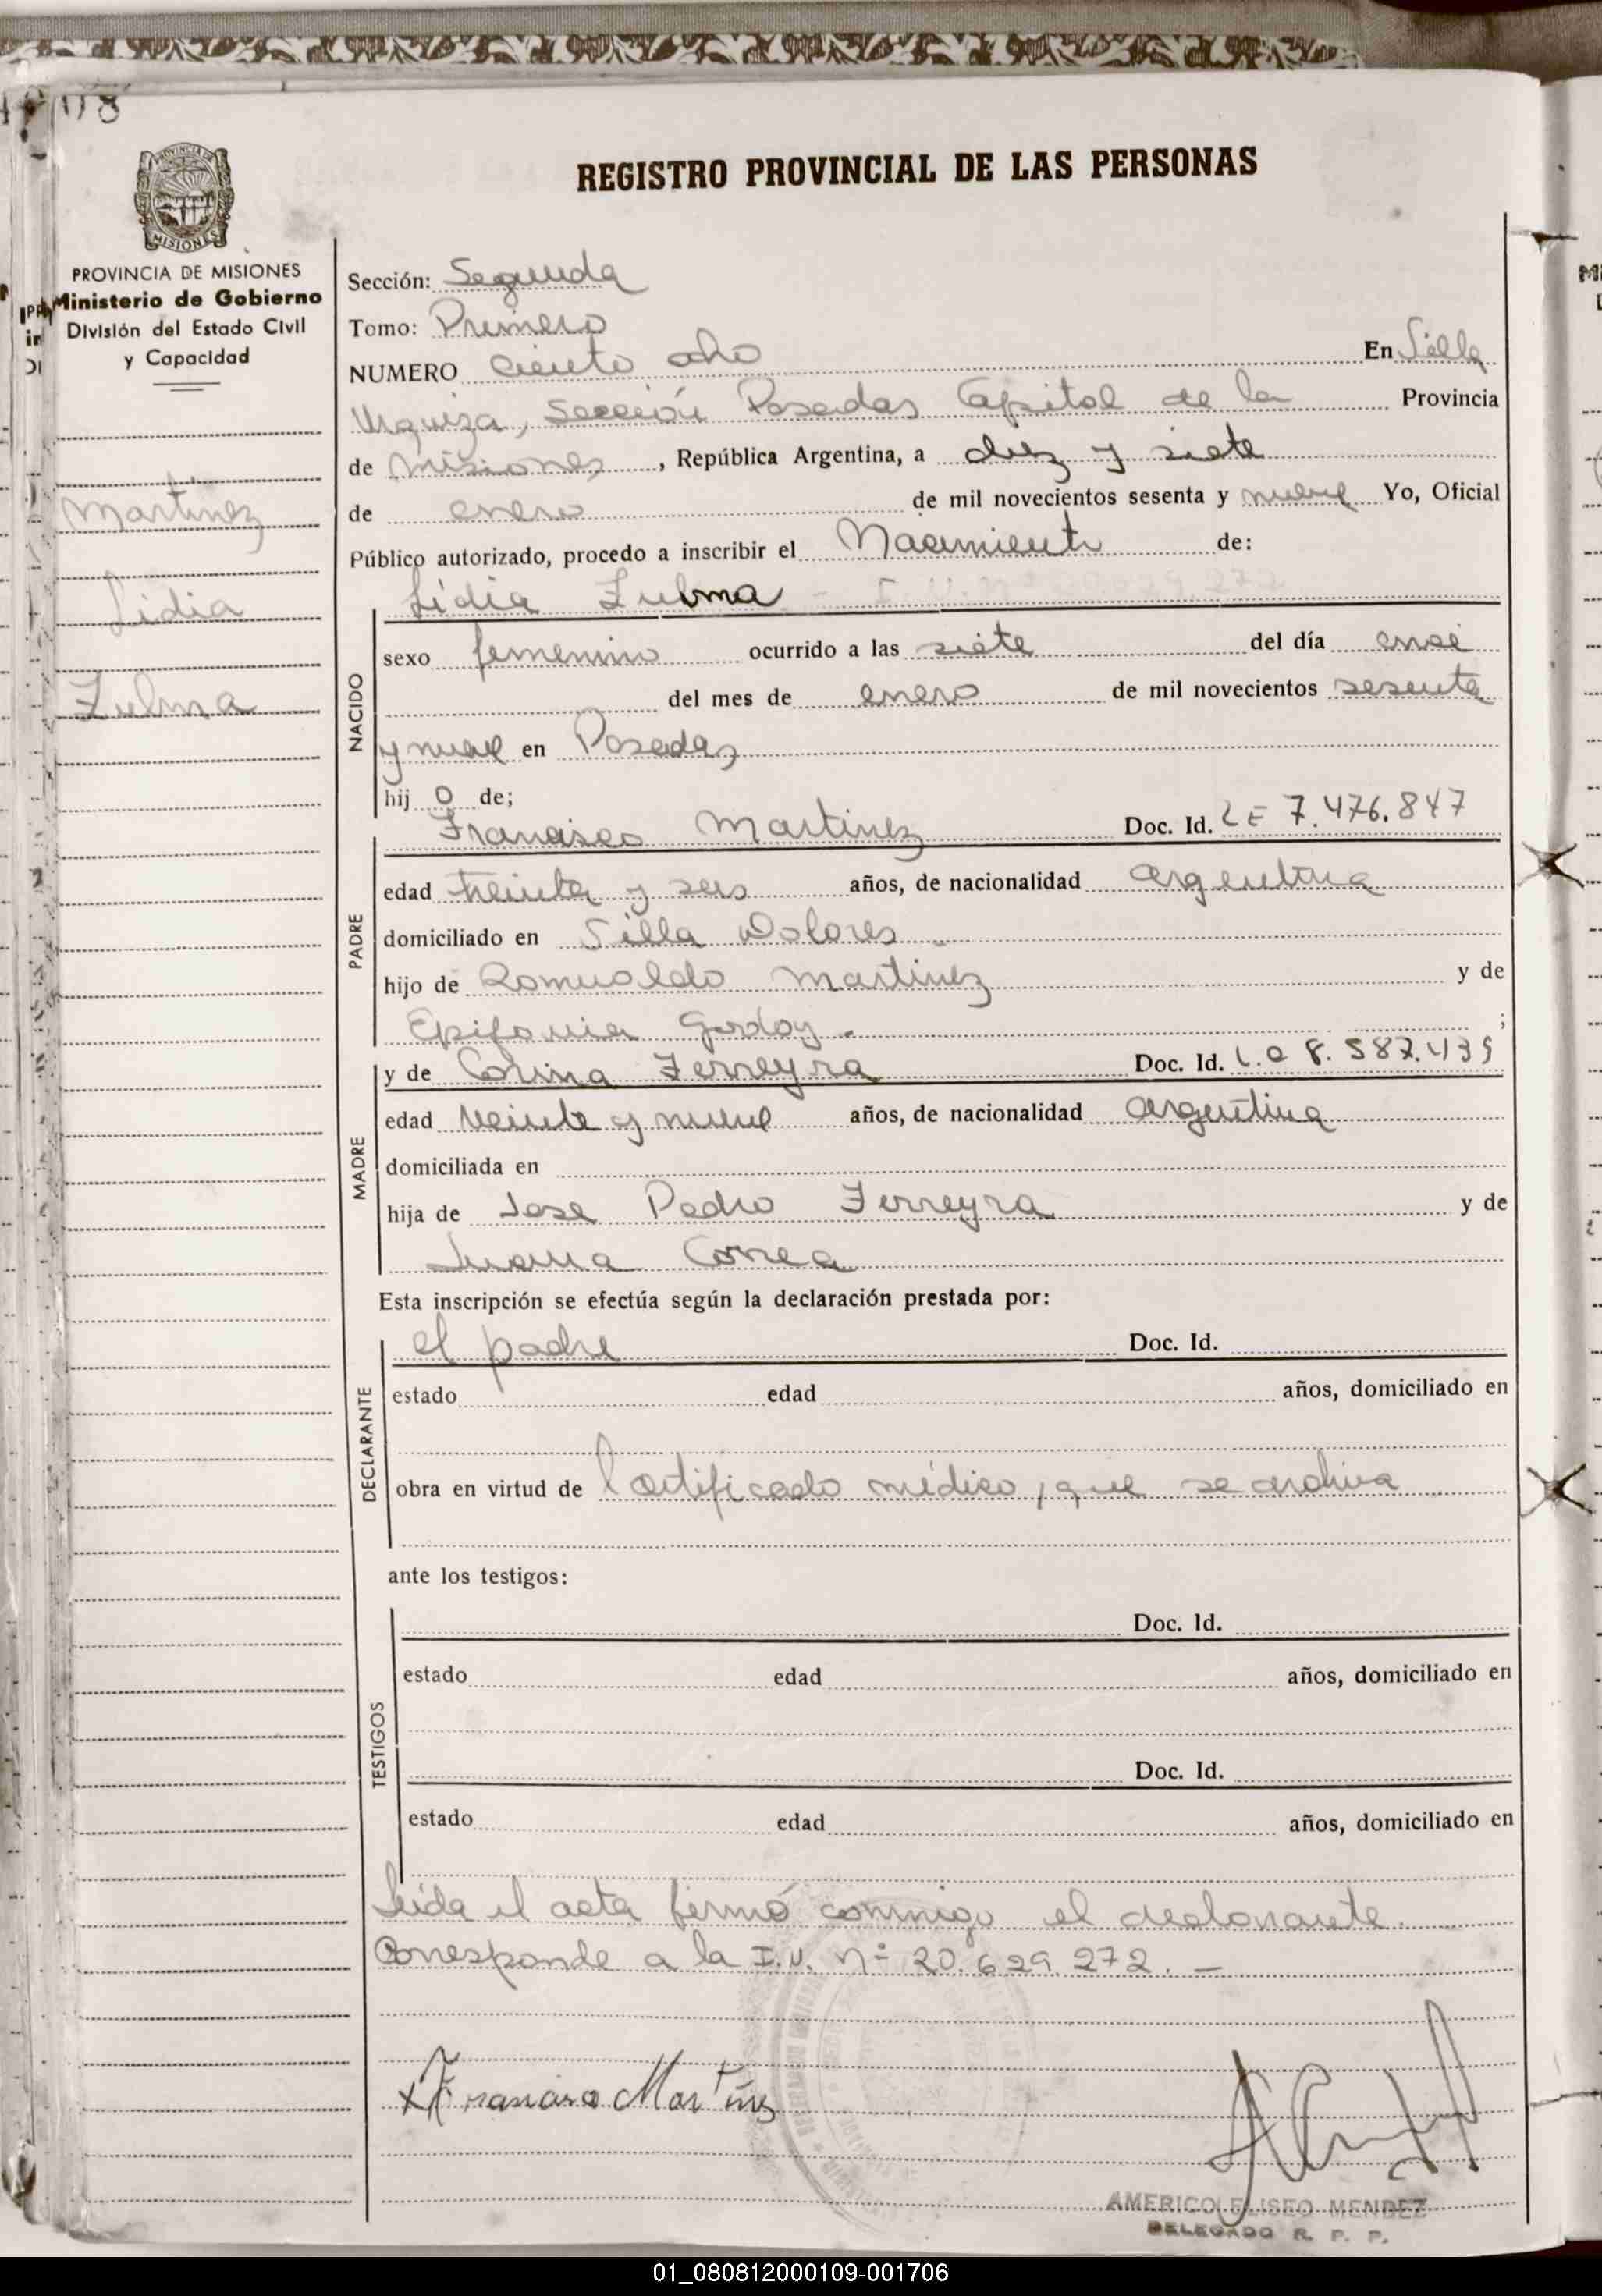 108
REGISTRO PROVINCIAL DE LAS PERSONAS
PROVINCIA DE MISIONES
Ministerio de Gobierno
División del Estado Civil
y Capacidad
Martinez
Lidia
Zulma
Sección: Segunda
Tomo: Primero
NUMERO ciento ocho En Villa
Urquiza, Sección Posadas Capital de la Provincia
de Misiones, República Argentina, a diez y siete
de enero de mil novecientos sesenta y nueve Yo, Oficial
Público autorizado, procedo a inscribir el Nacimiento de:
Lidia Zulma -
NACIDO
sexo femenino ocurrido a las siete del día once
del mes de enero de mil novecientos sesenta
y nueve en Posadas
hij o de;
Francisco Martinez Doc. Id. LE 7.476.847
PADRE
edad treinta y seis años, de nacionalidad argentina
domiciliado en Villa Dolores
hijo de Romualdo Martinez y de
Epifania Godoy. ;
y de Corina Ferreyra Doc. Id. L.C 8.587.439
MADRE
edad veinte y nueve años, de nacionalidad argentina
domiciliada en
hija de Jose Pedro Ferreyra y de
Juana Correa
Esta inscripción se efectúa según la declaración prestada por:
el padre Doc. Id.
DECLARANTE
estado edad años, domiciliado en
obra en virtud de Certificado médico, que se archiva
ante los testigos:
Doc. Id.
TESTIGOS
estado edad años, domiciliado en
Doc. Id.
estado edad años, domiciliado en
Leida el acta firmó conmigo el declarante.
Corresponde a la I.U. Nº 20.629.272. -
x Francisco Martinez
AMERICO ELISEO MENDEZ
DELEGADO R. P. P.
01_080812000109-001706